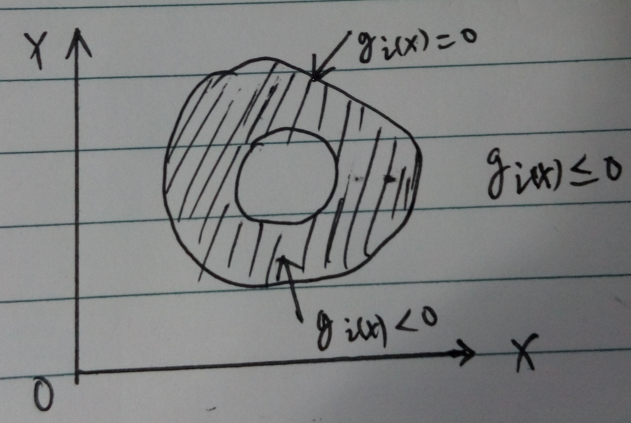 Y
g i(x)=0
g i(x)≤0
g i(x)<0
X
0